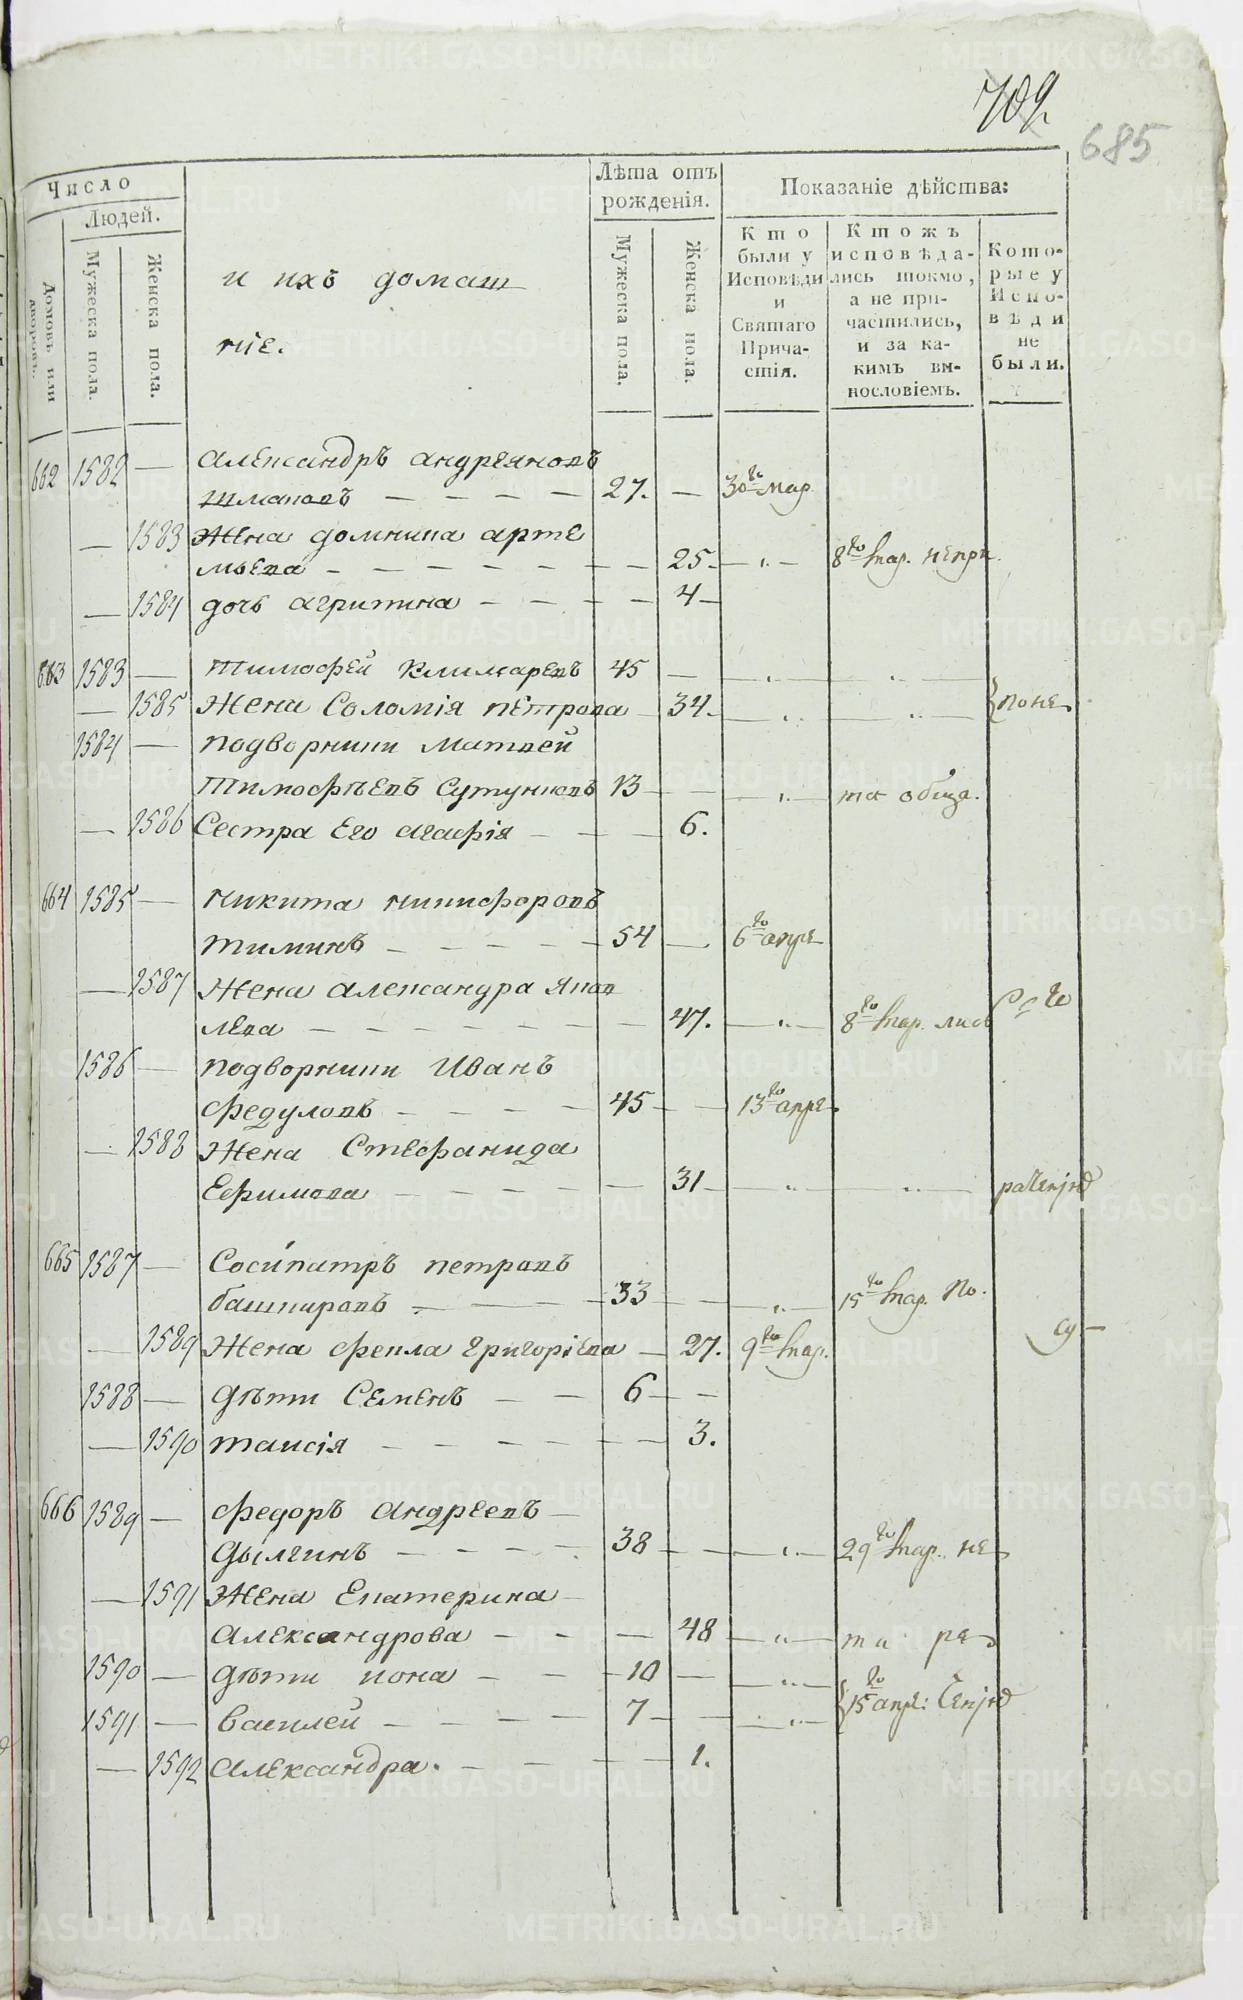 709.
685
Число
Людей.
Домовъ или дворовъ.
Мужеска пола.
Женска пола.
и ихъ домаш
ніе.
Лѣта отъ рожденія.
Мужеска пола.
Женска пола.
Показаніе дѣйства:
Кто были у Исповѣди и Святаго Прича-стія.
Ктожъ исповѣда-лись токмо, а не при-частились, и за ка-кимъ ви-нословіемъ.
Кото-рые у Испо-вѣди не были.
662 1582 — Александръ андреяновъ
шмаковъ — — — — 27. — 30го мар.
— 1583 Жена домника арте
мьева — — — — — — — 25. — „ — 8го мар. непри.
— 1584 дочь агрипина — — — — 4 —
663 1583 — Тимофей Климаревъ 45 — — „ — — „ —
— 1585 Жена Соломія петрова — 34. — „ — — „ — {поне
1584 — подворники Матвей
Тимофѣевъ Сутунковъ 13 — — — „ —
— 1586 Сестра Его агафія — — — 6.
664 1585 — никита никифоровъ
тиминъ — — — — — 54 — 6го апре
— 1587 Жена александра Яков
лева — — — — — — — 47. — „ — 8го мар.
1586 — подворники Иванъ
Федуловъ — — — — 45 — — 13го апре
— 1588 Жена Стефанида
Ефимова — — — — — — 31 — „ — — „ —
665 1587 — Сосипатръ петровъ
башкировъ — — — 33 — — „ — 15го мар. по.
— 1589 Жена фекла григоріева — 27. 9го мар.
1588 — дѣти Семенъ — — 6 — —
— 1590 таисія — — — — — — 3.
666 1589 — федоръ андреевъ —
дылгинъ — — — — 38 — — „ — 29го мар. не
— 1591 Жена Екатерина —
Александрова — — — — 48 — „ —
1590 — дѣти иона — — — 10 — — „ —
1591 — василей — — — — 7 — — „ — {15го апре:
— 1592 александра. — — — — — 1.